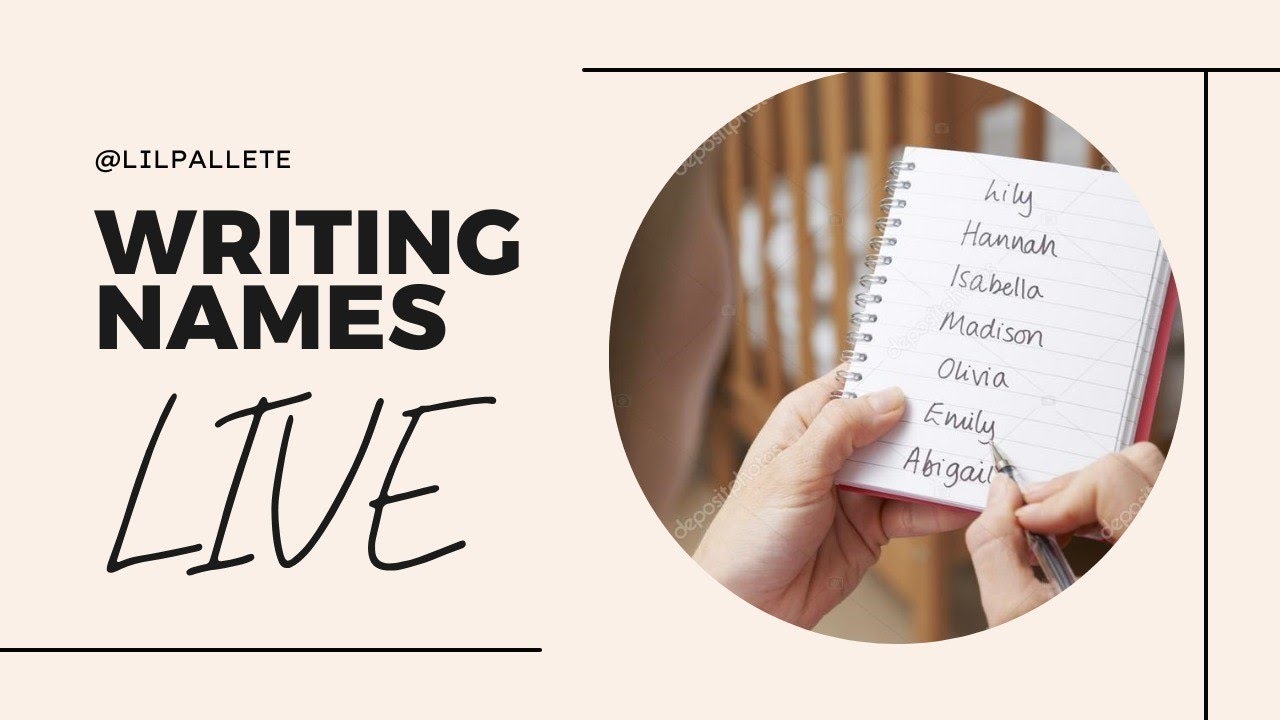 @LILPALLETE
WRITING
NAMES
LIVE
Lily
Hannah
Isabella
Madison
Olivia
Emily
Abigail
depositphotos